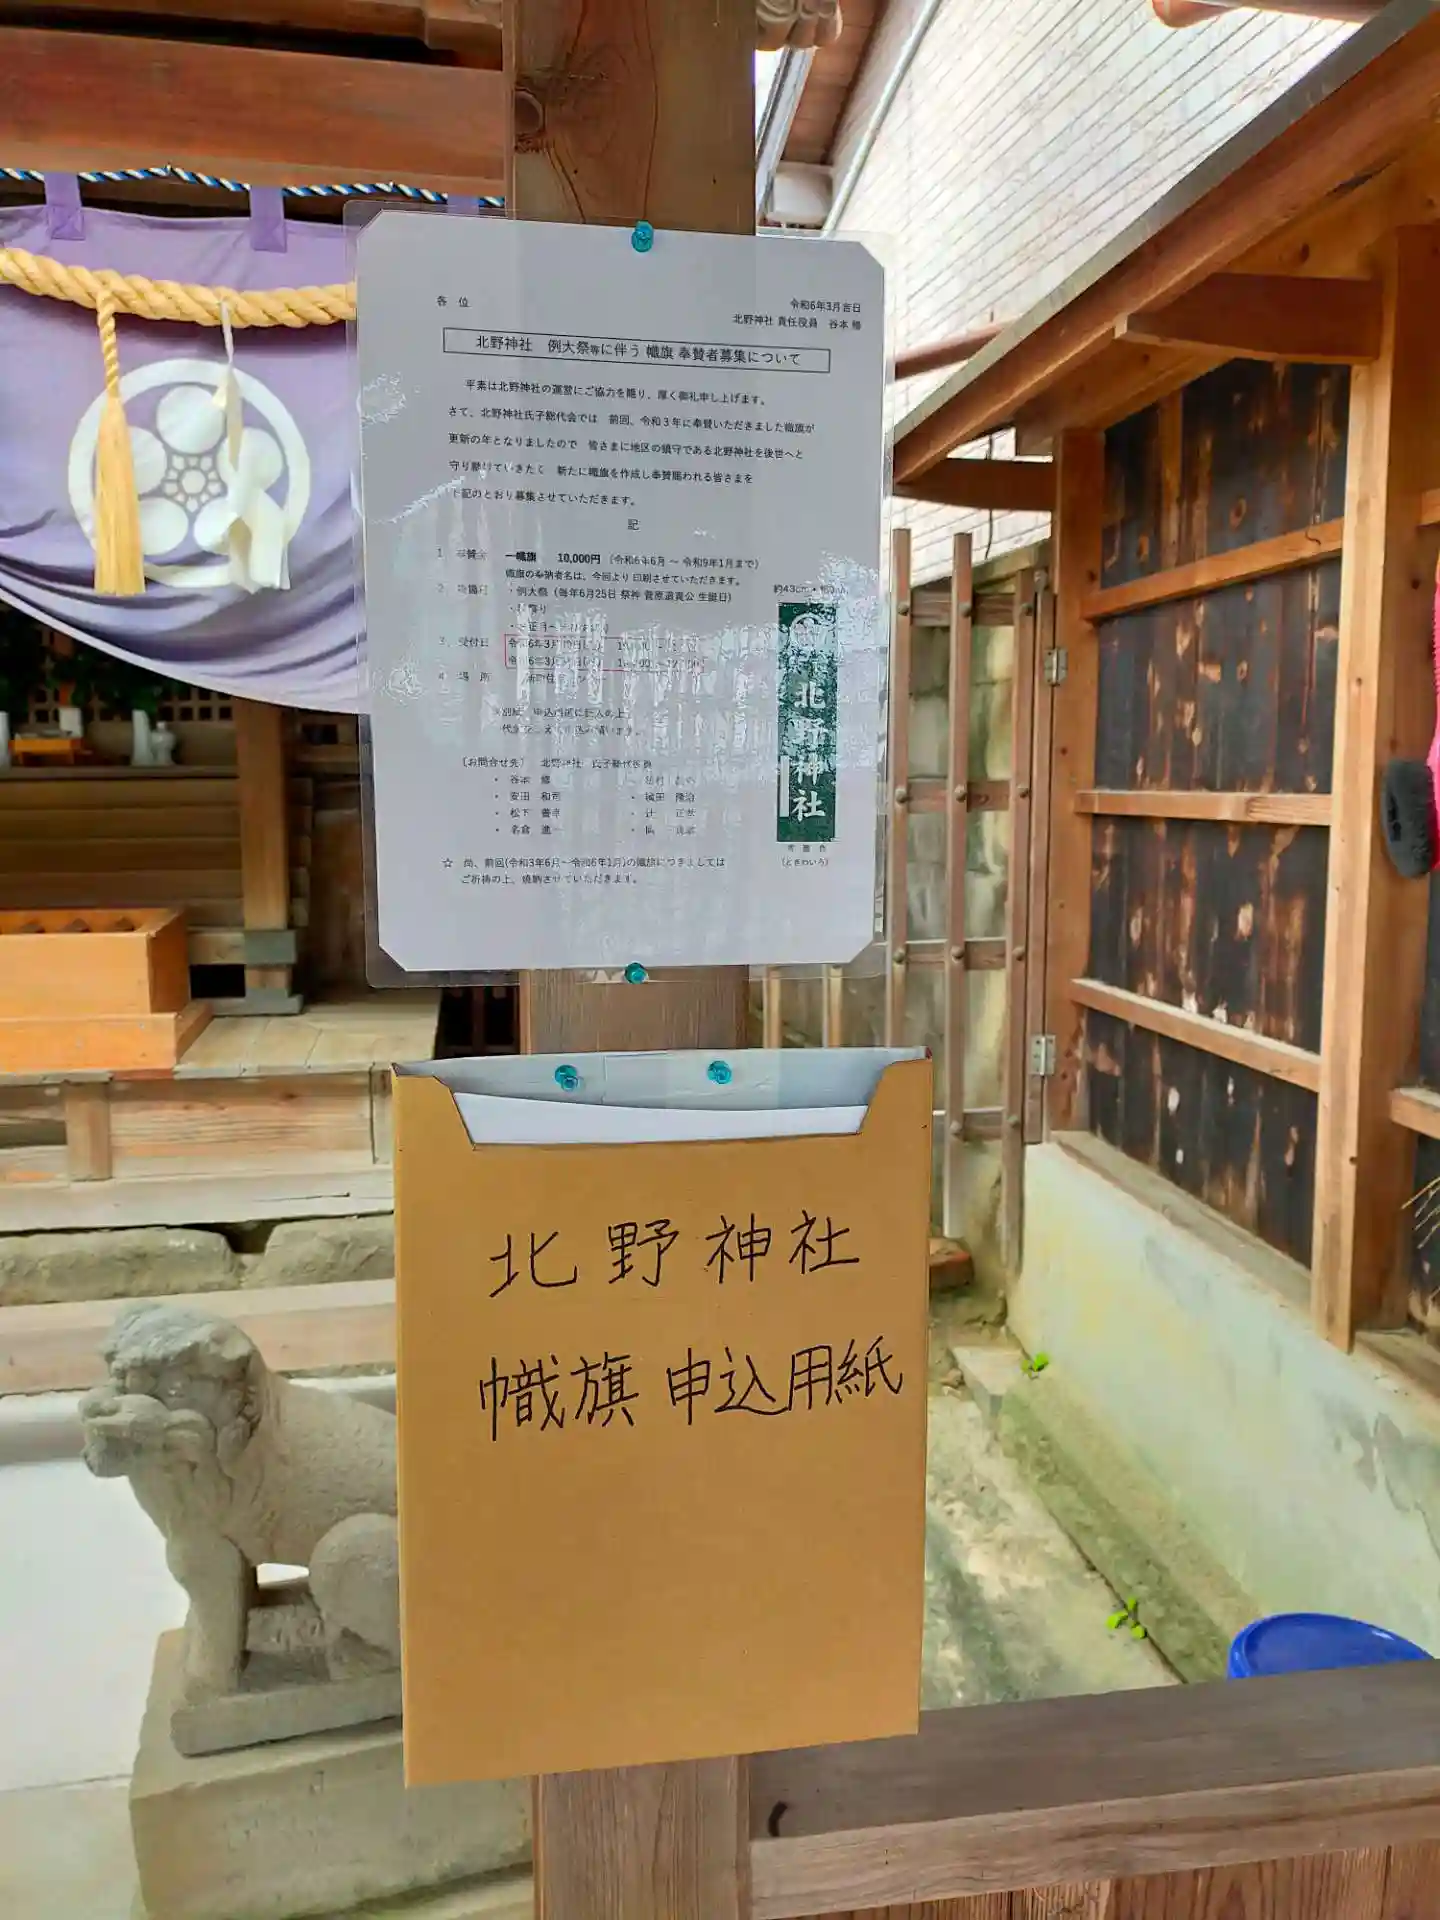 各 位
令和6年3月吉日
北野神社 責任役員 谷本
北野神社 例大祭等に伴う 幟旗 奉賛者募集について
平素は北野神社の運営にご協力を賜り、厚く御礼申し上げます。
さて、北野神社氏子総代会では 前回、令和3年に奉賛いただきました幟旗が
更新の年となりましたので 皆さまに地区の鎮守である北野神社を後世へと
守り続けていきたく 新たに幟旗を作成し奉賛賜われる皆さまを
下記のとおり募集させていただきます。
記
1. 奉賛金 一幟旗 10,000円 (令和6年6月 ~ 令和9年1月まで)
幟旗の奉納者名は、今回より印刷させていただきます。
2. 掲揚日 ・例大祭 (毎年6月25日 祭神 菅原道真公 生誕日)
約43cm
3. 受付日 令和6年3月
令和6年3月
4. 場 所
〔お問合せ先〕 北野神社 氏子総代役員
・ 谷本
・ 安田 和司
・ 松下
・ 名倉
北野神社
常盤色
(ときわいろ)
☆ 尚、前回(令和3年6月~令和6年1月)の幟旗につきましては
ご祈祷の上、焼納させていただきます。
北野神社
幟旗 申込用紙